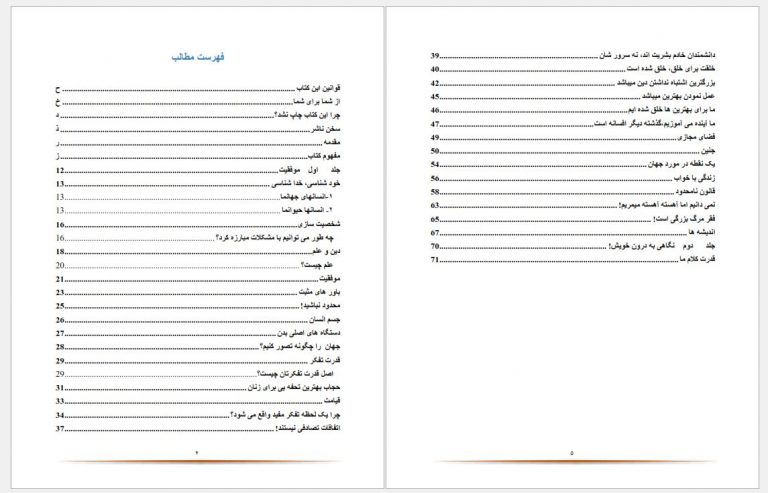 فهرست مطالب
قوانین این کتاب ح
از شما برای شما خ
چرا این کتاب چاپ نشد؟ د
سخن ناشر ذ
مقدمه ر
مفهوم کتاب ز
جلد اول موفقیت 12
خود شناسی، خدا شناسی 13
۱-انسانهای جهانما 13
۲- انسانها حیوانما 13
شخصیت سازی 16
چه طور می توانیم با مشکلات مبارزه کرد؟ 16
دین و علم 18
علم چیست؟ 20
موفقیت 21
باور های مثبت 23
محدود نباشید! 25
جسم انسان 26
دستگاه های اصلی بدن 27
جهان را چگونه تصور کنیم؟ 28
قدرت تفکر 29
اصل قدرت تفکرتان چیست؟ 29
حجاب بهترین تحفه یی برای زنان 31
قیامت 33
چرا یک لحظه تفکر مفید واقع می شود؟ 34
اتفاقات تصادفی نیستند! 37
۴
دانشمندان خادم بشریت اند، نه سرور شان 39
خلقت برای خلق، خلق شده است 40
بزرگترین اشتباه نداشتن دین میباشد 42
عمل نمودن بهترین میباشد 45
ما برای بهترین ها خلق شده ایم 46
ما آینده می آموزیم،گذشته دیگر افسانه است 47
فضای مجازی 49
جنین 50
یک نقطه در مورد جهان 54
زندگی با خواب 56
قانون نامحدود 58
نمی دانیم اما آهسته آهسته میمیریم! 63
فقر مرگ بزرگی است! 65
اندیشه ها 67
جلد دوم نگاهی به درون خویش! 70
قدرت کلام ما 71
۵